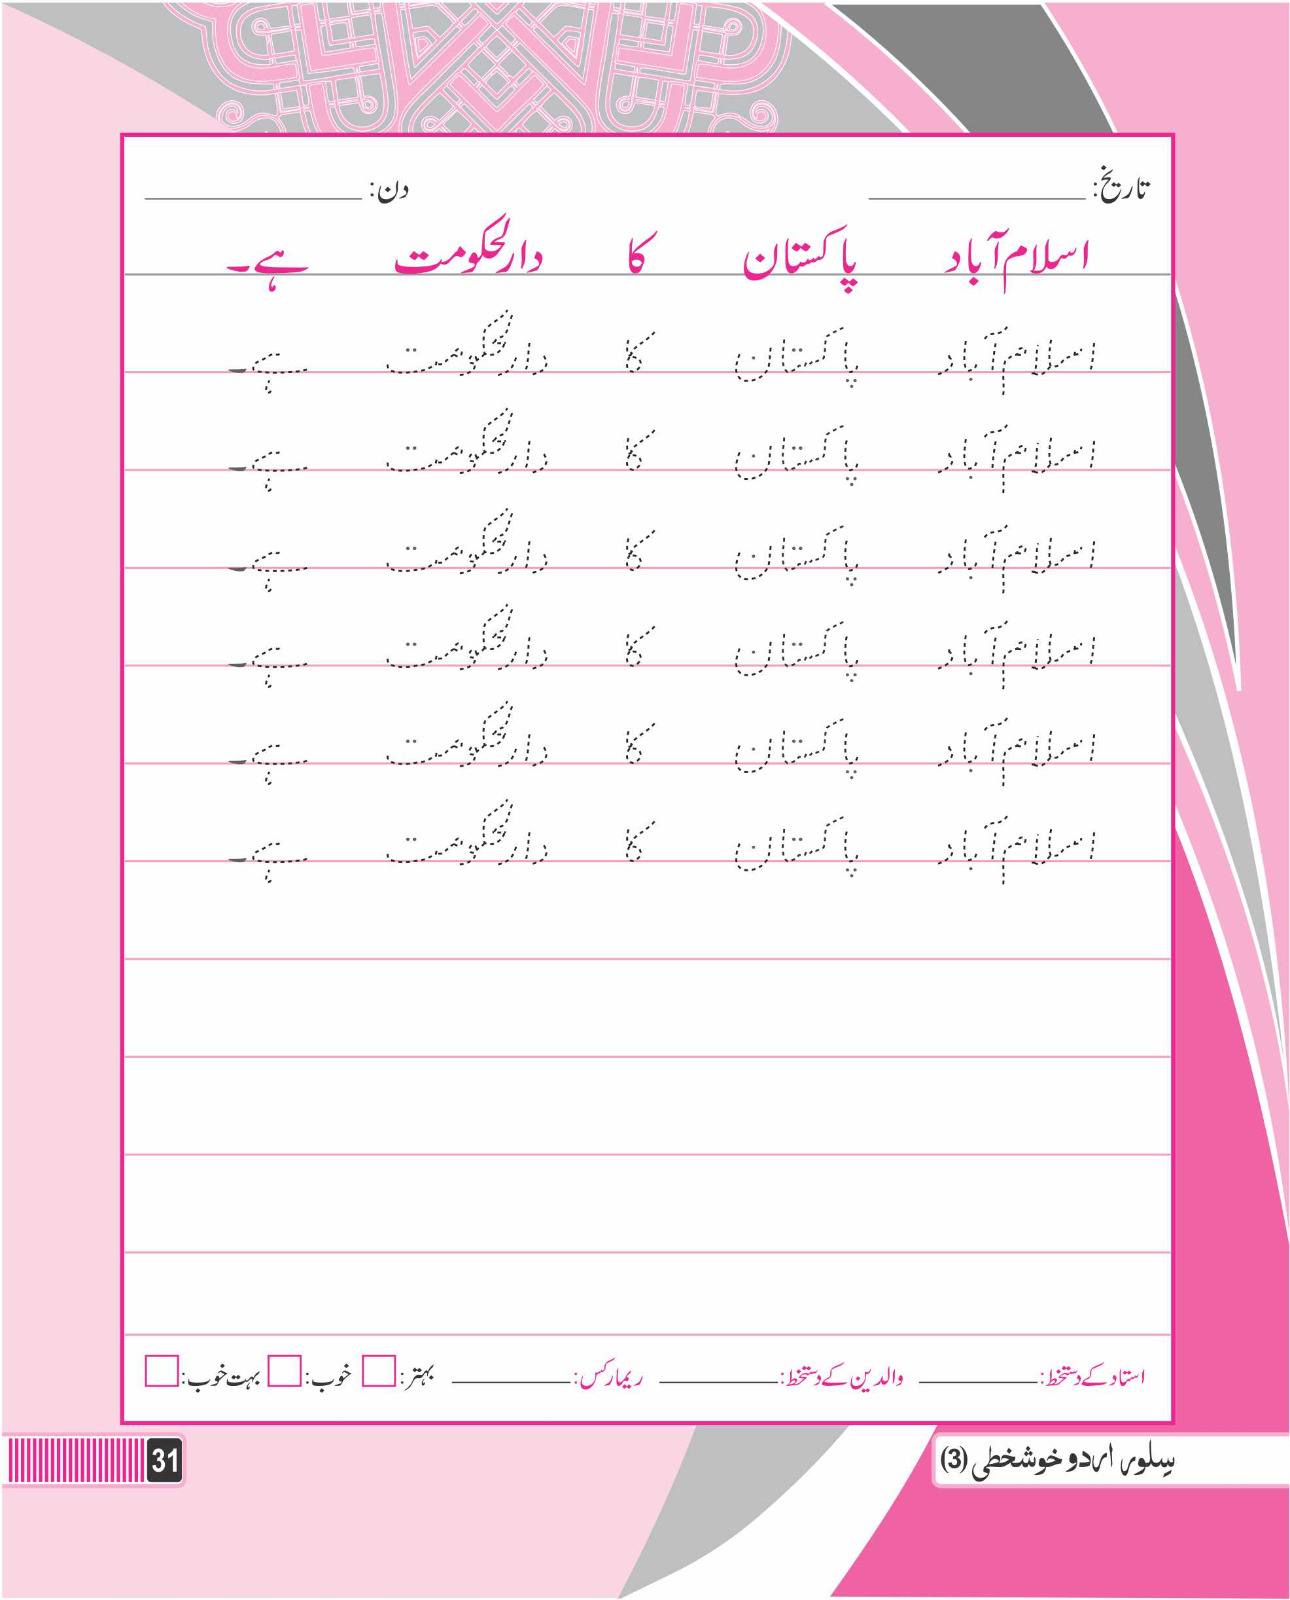 تاریخ: ____________ دن: ____________
اسلام آباد پاکستان کا دارلحکومت ہے۔
اسلام آباد پاکستان کا دارلحکومت ہے۔
اسلام آباد پاکستان کا دارلحکومت ہے۔
اسلام آباد پاکستان کا دارلحکومت ہے۔
اسلام آباد پاکستان کا دارلحکومت ہے۔
اسلام آباد پاکستان کا دارلحکومت ہے۔
اسلام آباد پاکستان کا دارلحکومت ہے۔
استاد کے دستخط: ________ والدین کے دستخط: ________ ریمارکس: ________ بہتر: □ خوب: □ بہت خوب: □
سِلور اردو خوشخطی (3)
31